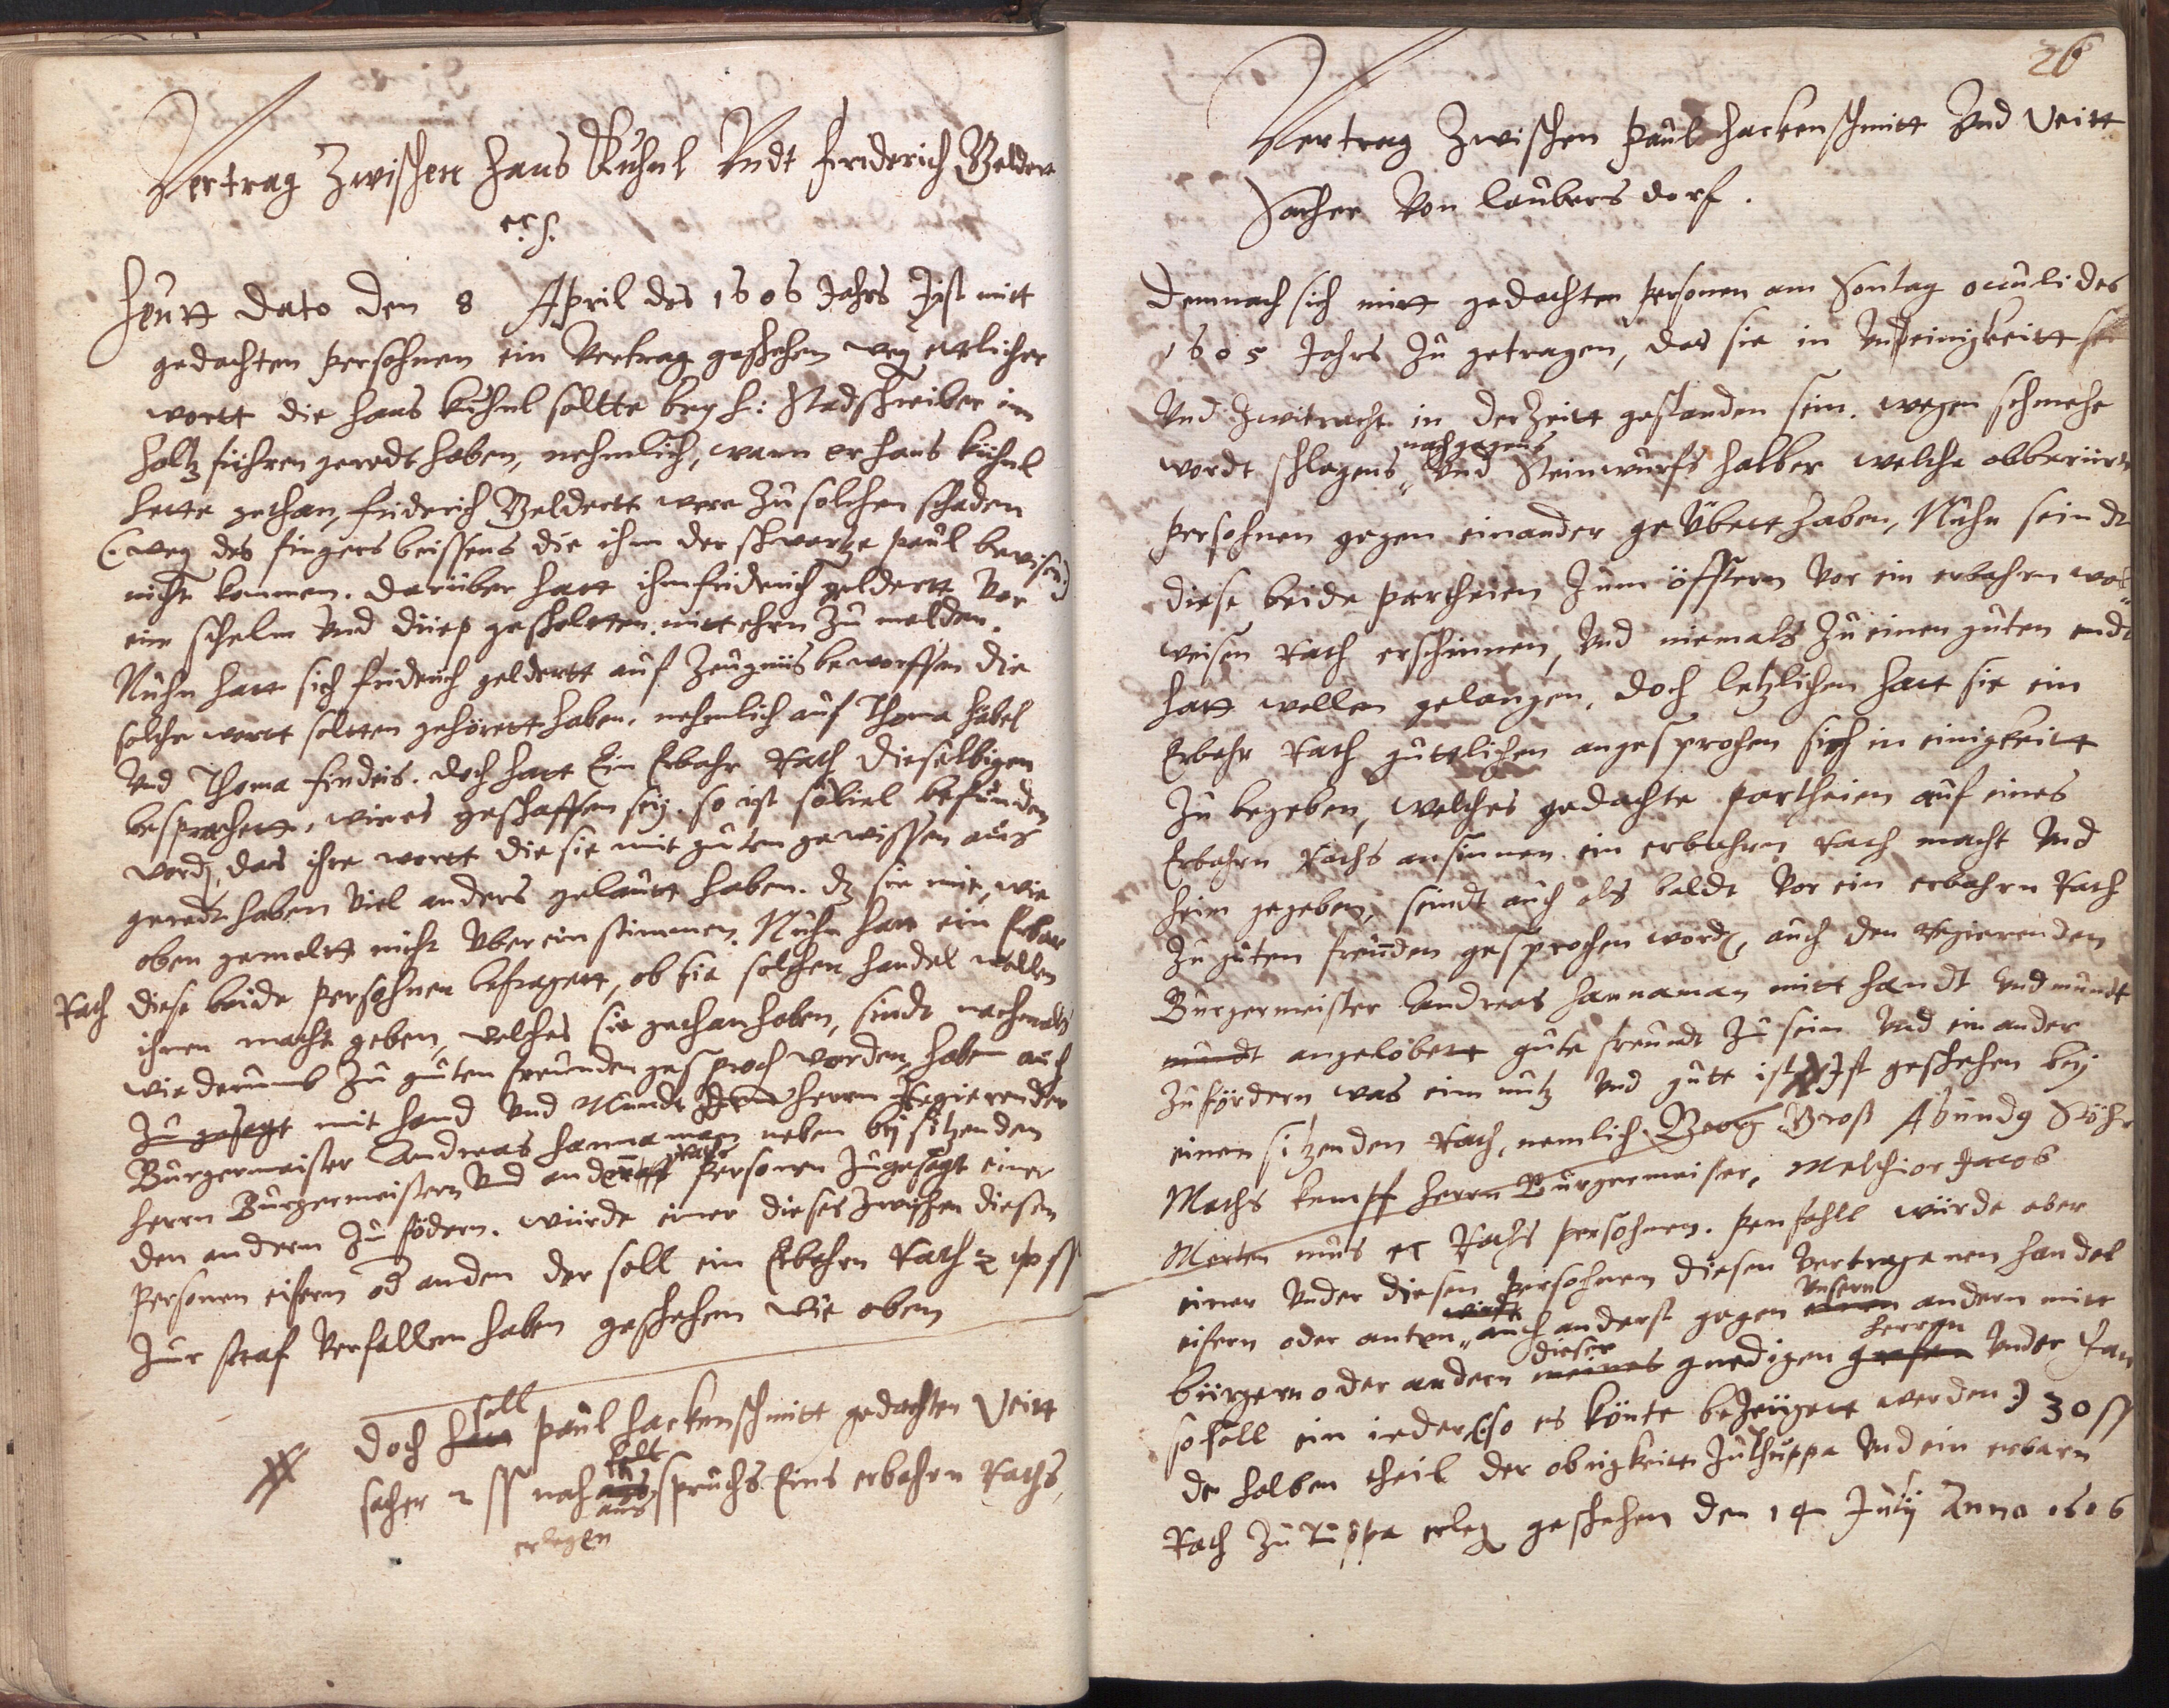 Vertrag Zwischen Hans Kuhnl Vndt Friderich Gelder
etc.
Heutt dato den 8 April des 1606 Jahrs Jst mitt
gedachten persohnen ein Vertrag geschehen weg etlicher
wortt die Hans Kuhnl soltte bey H: Stadschreiber im
holtz führen geredt haben, nehmlich, wann er Hans Kühnl
hette gethan, Friderich Geldertt were zu solchen schaden
(: weg des fingers beissens die ihm der schwartze Paul bewisen:)
nicht kommen. darüber hatt ihm Friderich geldertt Vor
ein schelm Vnd diep gescholtten, mitt ehrn zu melden.
Nuhn hatt sich Friderich geldertt auf Zeugnüs beworffen die
solche wortt soltten gehörett haben, nehmlich auf Thoma Häbel
Vnd Thoma Findeis. doch hatt Ein Erbahr Rath dieselbigen
besprochett, wie es geschaffen sey. so ist souiel befunden
word, das ihre wortt die sie mit guten gewissen aus
geredt haben Viel anders gelautt haben. dz sie mit, wie
oben gemeltt nicht Vberein stimmen. Nuhn hatt ein Erbar
Rath diese beide persohnen befragett, ob sie solchen handel wollen
ihnen macht geben, welches sie gethan haben, sindt nachmals
wiederumb zu guten freunden gesproch worden, haben auch
zu gesagt mit hand Vnd Mundt dem herrn Regierender
Burgermeister Andreas Hannaman neben bysitzenden
herrn Burgermeistern Vnd andern Rats personen zugesagt einer
den andern zu födern. würde einer dieses zwischen diesen
personen eifern od anden der soll ein Erbahrn Rath 2 ss
zur straf Verfallen haben geschehen wie oben
doch hatt soll Paul Hackenschmitt gedachten Veitt
sacher 2 ss nach aus spruchs Eins erbahrn Raths,
erlegen
26
Vertrag Zwischen Paul Hackenschmitt Vnd Veitt
Sacher Von Laubersdorf.
Demnach sich mitt gedachten personen am Sontag oculi des
1605 Jahrs zu getragen, das sie in Vneinigkeitt
Vnd zwitracht in der Zeitt gestanden sein. wegen schmehe
wordt schlagens nachgagens Vnd Steinwurfs halber welche obberürte
persohnen gegen einander geVbett haben, Nuhn seindt
diese beide partheien zum öfftern Vor ein erbahrn wol
weisen Rath erschinnen, Vnd niemals zu einen guten endt
hatt wollen gelangen. doch letzlichen hatt sie ein
Erbahr Rath güttlichen angesprochen sich in einigkeitt
zu begeben, welches gedachte partheien auf eines
Erbahrn Raths ansinnen ein erbahrn Rath macht Vnd
heim gegeben, sindt auch als baldt Vor ein erbahrn Rath
zu guten freunden gesprochen word, auch den Regierenden
Burgermeister Andreas Hannaman mitt handt Vnd mundt
mundt angelobett gute freundt zu sein Vnd ein ander
zu fördern was eim nutz Vnd gutt ist Jst geschehen bey
einem sitzenden Rath, nemlich Georg Groß Abundg Stöhr
Maths Kempff herrn Burgermeister, Melchior Jacob
Merten etc Raths persohnen. penfahll würde aber
einer Vnder diesen persohnen diesen Vertragenen handel
eifern oder anten, auch anderst gegen einen Vnsern andern mitt
bürgern oder andern meines dieser gnedigen grafen herren Vnder
so soll ein ieder (:so es könte bezeugett werden:) 30 ss
de halben theil der obrigkeitt Vnd ein erbarn
Rath zu erleg geschehen den 14 July Anno 1606